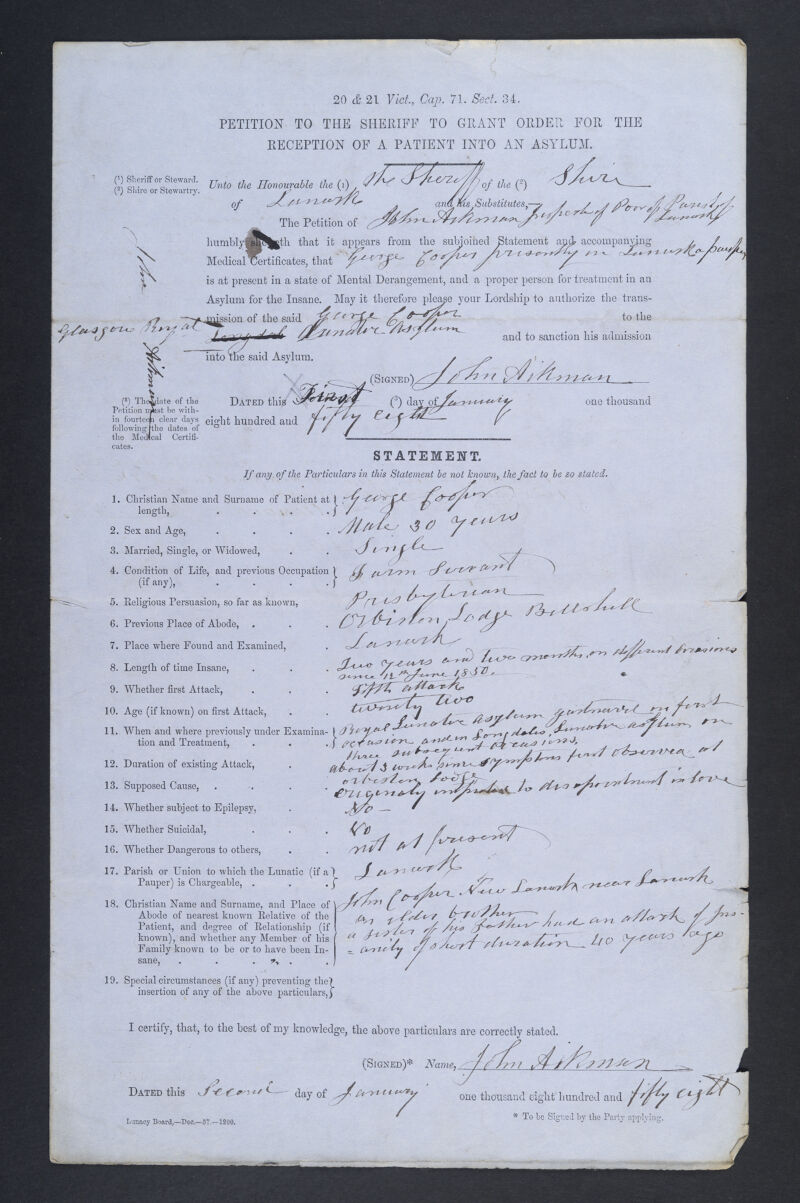 20 & 21 Vict., Cap. 71. Sect. 34.
PETITION TO THE SHERIFF TO GRANT ORDER FOR THE
RECEPTION OF A PATIENT INTO AN ASYLUM.
(¹) Sheriff or Steward.
(²) Shire or Stewartry.
Unto the Honourable the (1) The Sheriff of the (²) Shire
of Lanark and his Substitutes,
The Petition of John Aikman Inspector of Poor of Parish of
Lanark
humbly sheweth that it appears from the subjoined Statement and accompanying
Medical Certificates, that George Cooper presently in Lanark a pauper
is at present in a state of Mental Derangement, and a proper person for treatment in an
Asylum for the Insane. May it therefore please your Lordship to authorize the trans-
mission of the said George Cooper to the
Glasgow Royal Lunatic Asylum and to sanction his admission
into the said Asylum.
John Aikman
(SIGNED) John Aikman
(³) The date of the
Petition must be with-
in fourteen clear days
following the dates of
the Medical Certifi-
cates.
DATED this First (³) day of January one thousand
eight hundred and fifty eight
STATEMENT.
If any of the Particulars in this Statement be not known, the fact to be so stated.
1. Christian Name and Surname of Patient at
length, George Cooper
2. Sex and Age, Male 30 years
3. Married, Single, or Widowed, Single
4. Condition of Life, and previous Occupation
(if any), Farm Servant
5. Religious Persuasion, so far as known, Presbyterian
6. Previous Place of Abode, Orbiston Lodge Bellshill
7. Place where Found and Examined, Lanark
8. Length of time Insane, Two years and two months, on different occasions
since 12th June 1850.
9. Whether first Attack, Fifth attack
10. Age (if known) on first Attack, twenty two
11. When and where previously under Examina-
tion and Treatment, Royal Lunatic Asylum gartnavel on first
occasion and in Longdales Lunatic asylum on
three subsequent occasions.
12. Duration of existing Attack, about 3 weeks since symptoms first observed at
orbiston Lodge
13. Supposed Cause, Originaly imputed to disapointment in love
14. Whether subject to Epilepsy, No
15. Whether Suicidal, No
16. Whether Dangerous to others, not at present
17. Parish or Union to which the Lunatic (if a
Pauper) is Chargeable, Lanark
18. Christian Name and Surname, and Place of
Abode of nearest known Relative of the
Patient, and degree of Relationship (if
known), and whether any Member of his
Family known to be or to have been In-
sane,
John Cooper New Lanark near Lanark
an elder brother
a sister of his father had an attack of Ins-
=anity of short duration 40 years ago
19. Special circumstances (if any) preventing the
insertion of any of the above particulars,
I certify, that, to the best of my knowledge, the above particulars are correctly stated.
(SIGNED)* Name, John Aikman
DATED this Second day of January one thousand eight hundred and fifty eight
Lunacy Board,—Doc.—57.—1200.
* To be Signed by the Party applying.